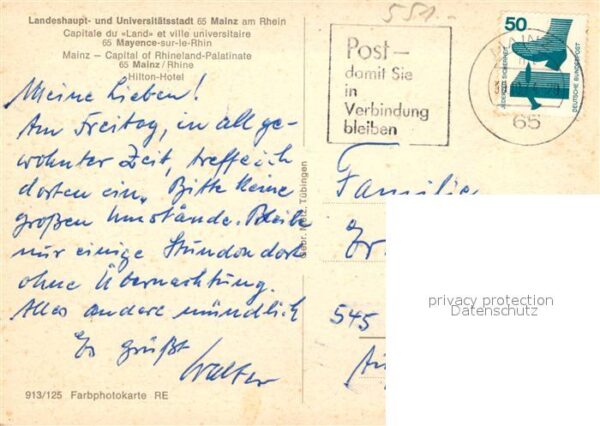 Landeshaupt- und Universitätsstadt 65 Mainz am Rhein
Capitale du «Land» et ville universitaire
65 Mayence-sur-le-Rhin
Mainz – Capital of Rhineland-Palatinate
65 Mainz/Rhine
Hilton-Hotel
Meine Lieben!
Am Freitag, in all ge-
wohnter Zeit, treffe ich
dorten ein. Bitte keine
großen Umstände. Bleibe
nur einige Stunden dort
ohne Übernachtung.
Alles andere mündlich
Es grüßt
Walter
913/125 Farbphotokarte RE
Gebr. Metz, Tübingen
551.-
Post –
damit Sie
in
Verbindung
bleiben
MAINZ
65
50
JEDERZEIT SICHERHEIT
DEUTSCHE BUNDESPOST
Familie
Fr.
545
privacy protection
Datenschutz